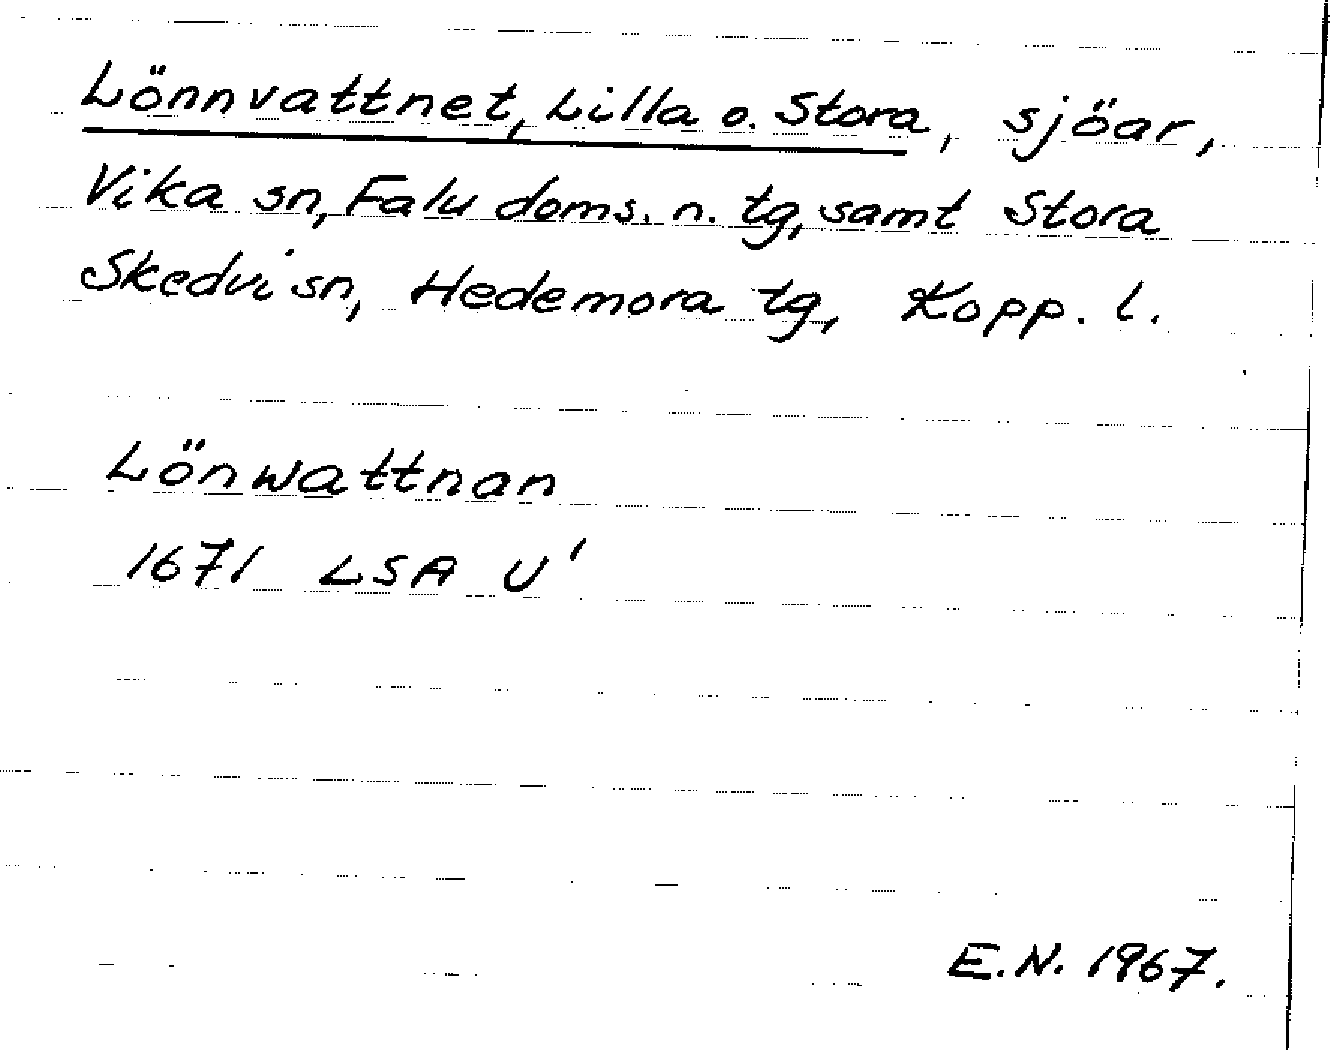 Lönnvattnet, Lilla o. Stora, sjöar,
Vika sn, Falu doms. n. tg, samt Stora
Skedvi sn, Hedemora tg, Kopp. l.
Lönwattnan
1671 LSA U'
E.N. 1967.